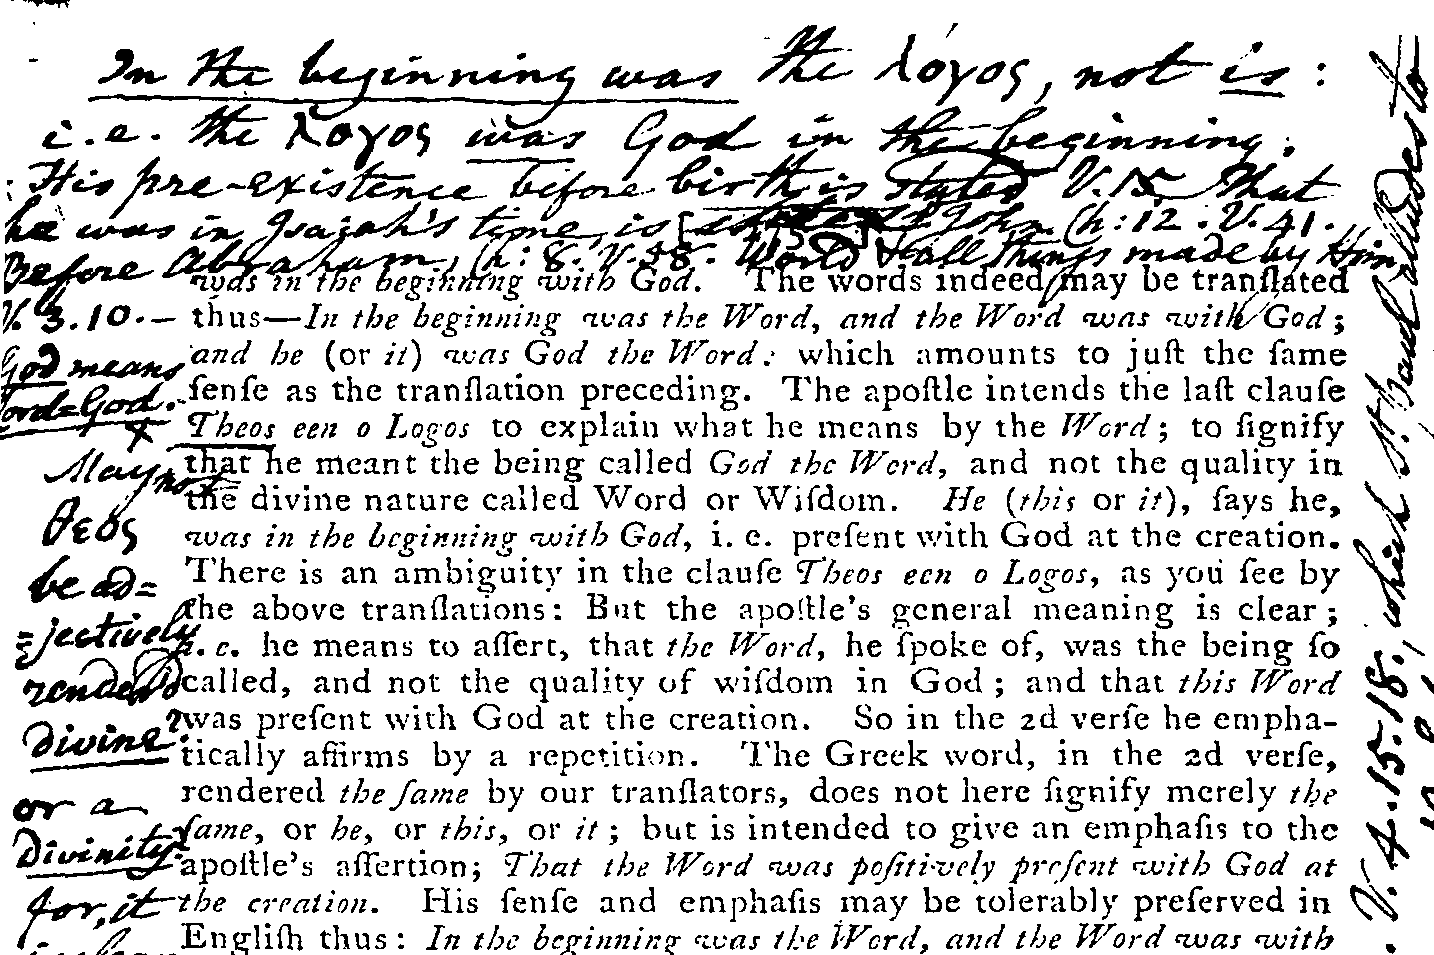 In the beginning was the λόγος, not is :
i.e. the λογος was God in the beginning.
His pre-existence before birth is stated V. 15 That
he was in Isajah's time, is John Ch: 12. V. 41.
Before Abraham, Ch: 8. V. 58. World & all things made by Him
V. 3.10.—
God means
Lord=God.
x
May not
θεος
be ad=
=jectively
rendered
divine?
or a
Divinity
for, it
was in the beginning with God. The words indeed may be tranſlated
thus—In the beginning was the Word, and the Word was with God;
and he (or it) was God the Word: which amounts to juſt the ſame
ſenſe as the tranſlation preceding. The apoſtle intends the laſt clauſe
Theos een o Logos to explain what he means by the Word; to ſignify
that he meant the being called God the Word, and not the quality in
the divine nature called Word or Wiſdom. He (this or it), ſays he,
was in the beginning with God, i. e. preſent with God at the creation.
There is an ambiguity in the clauſe Theos een o Logos, as you ſee by
the above tranſlations: But the apoſtle's general meaning is clear;
i. e. he means to aſſert, that the Word, he ſpoke of, was the being ſo
called, and not the quality of wiſdom in God; and that this Word
was preſent with God at the creation. So in the 2d verſe he empha-
tically affirms by a repetition. The Greek word, in the 2d verſe,
rendered the ſame by our tranſlators, does not here ſignify merely the
ſame, or he, or this, or it; but is intended to give an emphaſis to the
apoſtle's aſſertion; That the Word was poſitively preſent with God at
the creation. His ſenſe and emphaſis may be tolerably preſerved in
Engliſh thus: In the beginning was the Word, and the Word was with
V. 4.15.18., which St. Paul alludes to